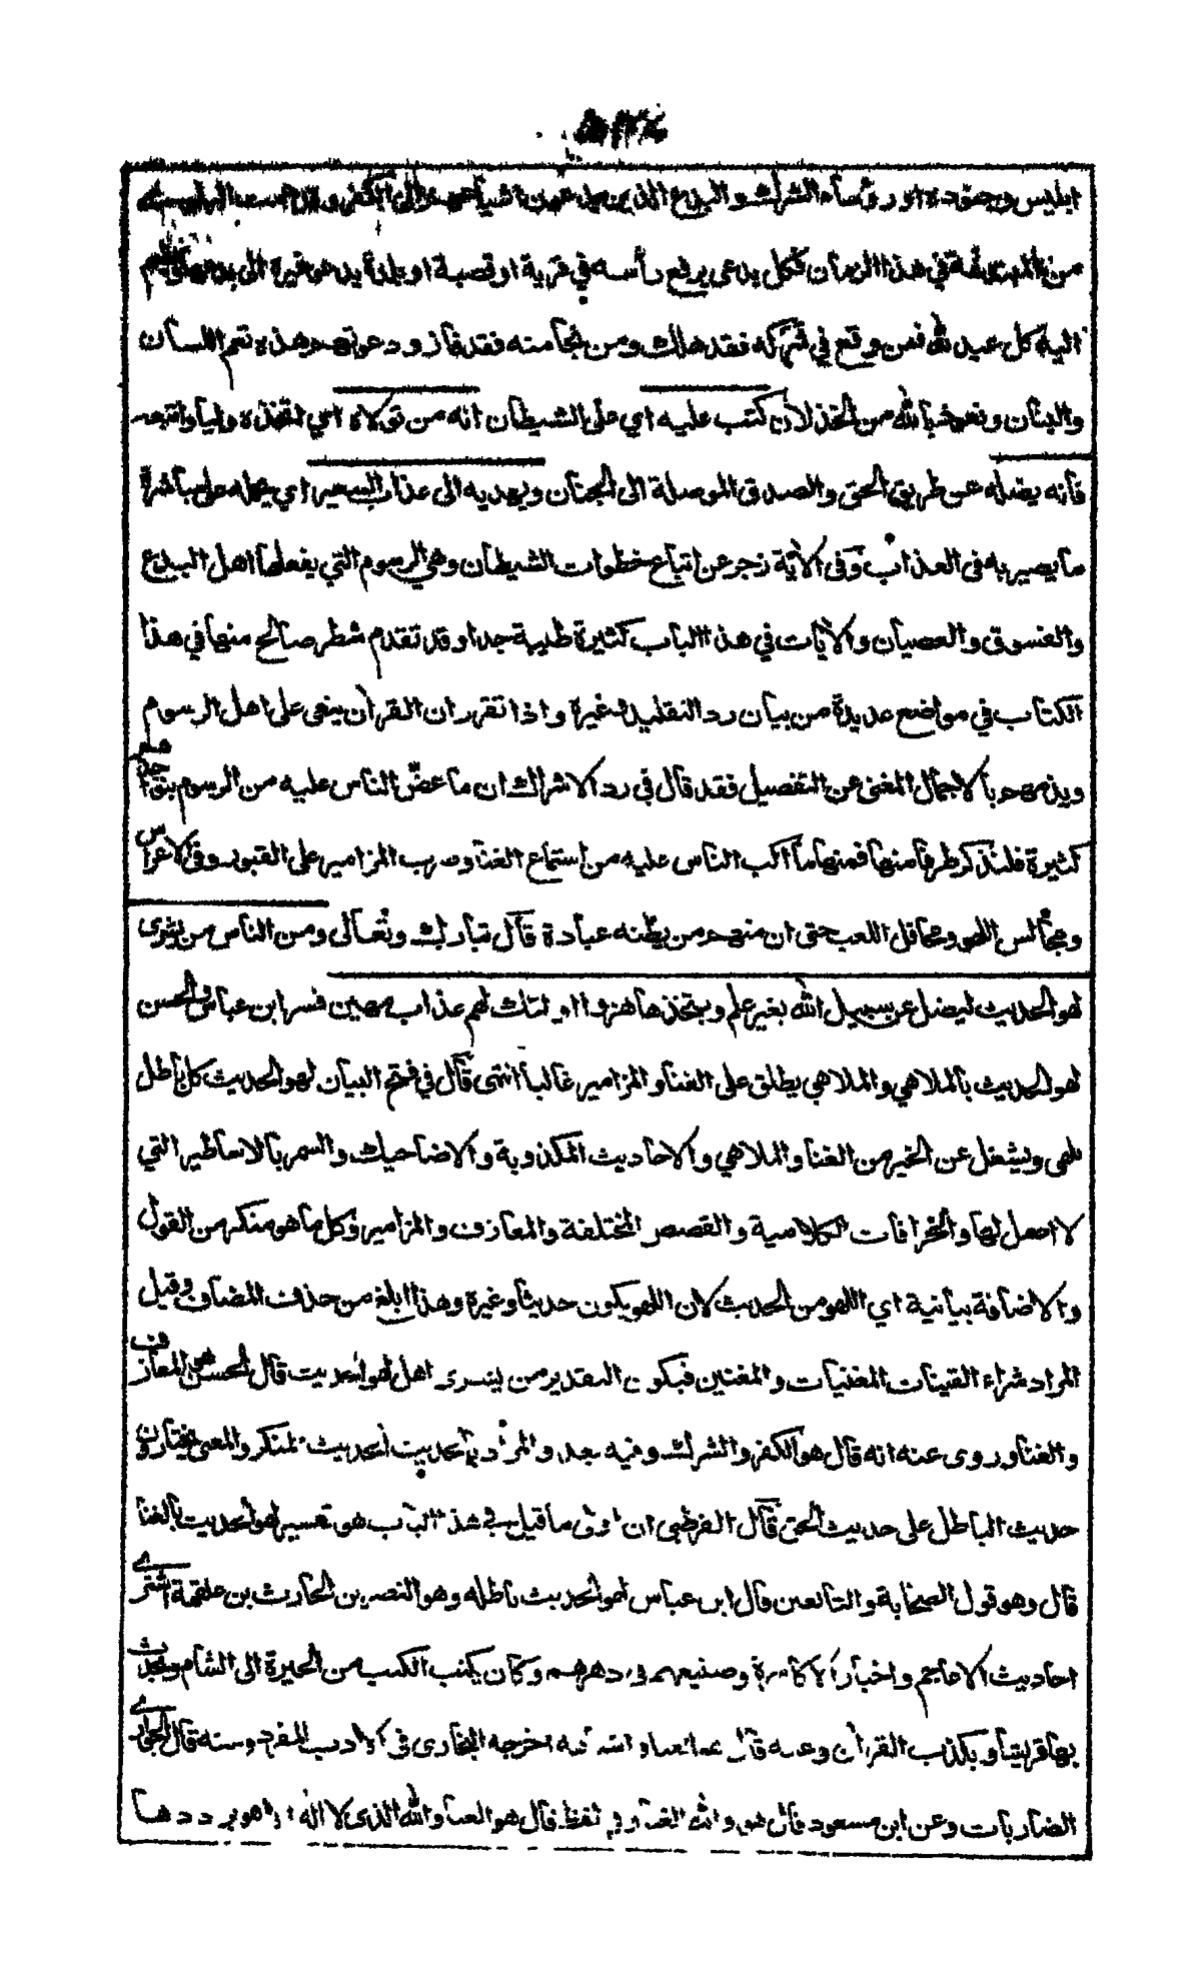 ابليس وجنوده او رؤساء الشرك والبدع الذين يدعون اشياعهم الى الكفر
من المبتدعة في هذا الزمان فكل بدعي يرفع رأسه في قرية او قصبة او بلدة يدعو غيره الى بدعته
اليه كل عبد لله فمن وقع في شركه فقد هلك ومن نجا منه فقد فاز ودعوتهم هذه تعم اللسان
والبنان ونعوذ بالله من الخذلان كتب عليه اي على الشيطان انه من تولاه اي اتخذه وليا واتبعه
فانه يضله عن طريق الحق والصدق الموصلة الى الجنان ويهديه الى عذاب السعير اي يحمله على مباشرة
ما يصير به في العذاب وفي الآية زجر عن اتباع خطوات الشيطان وهي الرسوم التي يفعلها اهل البدع
والفسوق والعصيان والآيات في هذا الباب كثيرة طيبة جدا وقد تقدم شطر صالح منها في هذا
الكتاب في مواضع عديدة من بيان رد التقليد وغيره واذا تقرر ان القرآن ينعى على اهل الرسوم
ويذمهم بالاجمال المغني عن التفصيل فقد قال في رد الاشراك ان ما عض الناس عليه من الرسوم
كثيرة فلنذكر طرفا منها فمنها ما اكب الناس عليه من استماع الغنا وضرب المزامير على القبور وفي الاعراس
ومجالس اللهو ومحافل اللعب حتى ان منهم من يظنه عبادة قال تبارك وتعالى ومن الناس من يشتري
لهو الحديث ليضل عن سبيل الله بغير علم ويتخذها هزوا اولئك لهم عذاب مهين فسر ابن عباس والحسن
لهو الحديث بالملاهي والملاهي يطلق على الغنا والمزامير غالبا انتهى قال في فتح البيان لهو الحديث كل باطل
يلهي ويشغل عن الخير من الغنا والملاهي والاحاديث المكذوبة والاضاحيك والسمر بالاساطير التي
لا اصل لها والخرافات الكلامية والقصص المختلفة والمعازف والمزامير وكل ما هو منكر من القول
والاضافة بيانية اي اللهو من الحديث لان اللهو يكون حديثا وغيره وهذا ابلغ من حذف المضاف وقيل
المراد شراء القينات المغنيات والمغنين فيكون التقدير من يشتري اهل لهو الحديث قال الحسن هي المعازف
والغنا وروى عنه انه قال هو الكفر والشرك وفيه بعد والمراد بالحديث الحديث المنكر والمعنى يختارون
حديث الباطل على حديث الحق قال القرطبي ان اولى ما قيل في هذا الباب هو تفسير لهو الحديث بالغنا
قال وهو قول الصحابة والتابعين قال ابن عباس لهو الحديث باطله وهو النضر بن الحارث بن علقمة اشترى
احاديث الاعاجم واخبار الاكاسرة وصنيعهم في دهرهم وكان يكتب الكتب من الحيرة الى الشام ويحدث
بها قريشا ويكذب القرآن وعنه قال هو الغنا واشباهه اخرجه البخاري في الادب المفرد وعنه قال الجواري
الضاربات وعن ابن مسعود قال هو والله الغنا وفي لفظ قال هو الغنا والله الذي لا اله الا هو يرددها